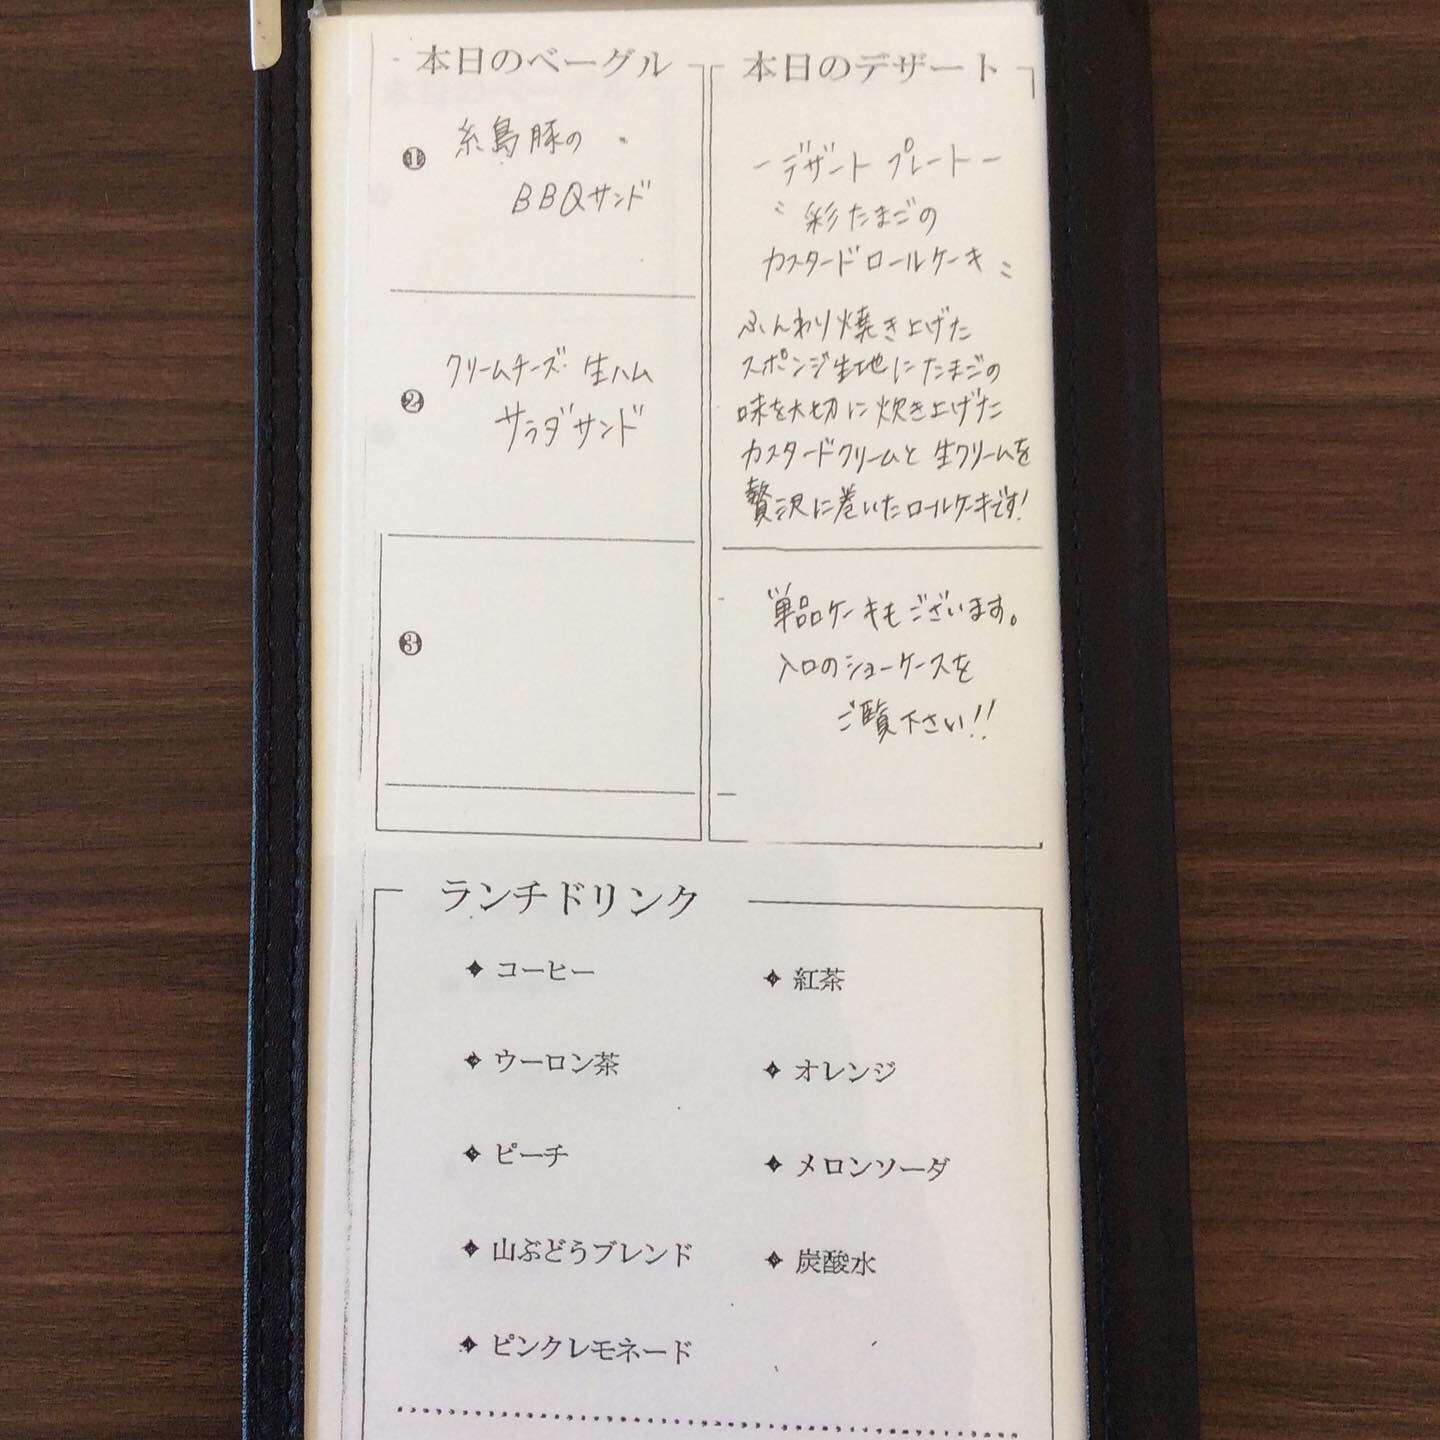 本日のベーグル
❶ 糸島豚の
BBQサンド
❷ クリームチーズ 生ハム
サラダサンド
❸
本日のデザート
ーデザート プレートー
〝彩たまごの
カスタードロールケーキ〟
ふんわり焼き上げた
スポンジ生地にたまごの
味を大切に炊き上げた
カスタードクリームと生クリームを
贅沢に巻いたロールケーキです!
単品ケーキもございます。
入口のショーケースを
ご覧下さい!!
ランチドリンク
コーヒー
紅茶
ウーロン茶
オレンジ
ピーチ
メロンソーダ
山ぶどうブレンド
炭酸水
ピンクレモネード